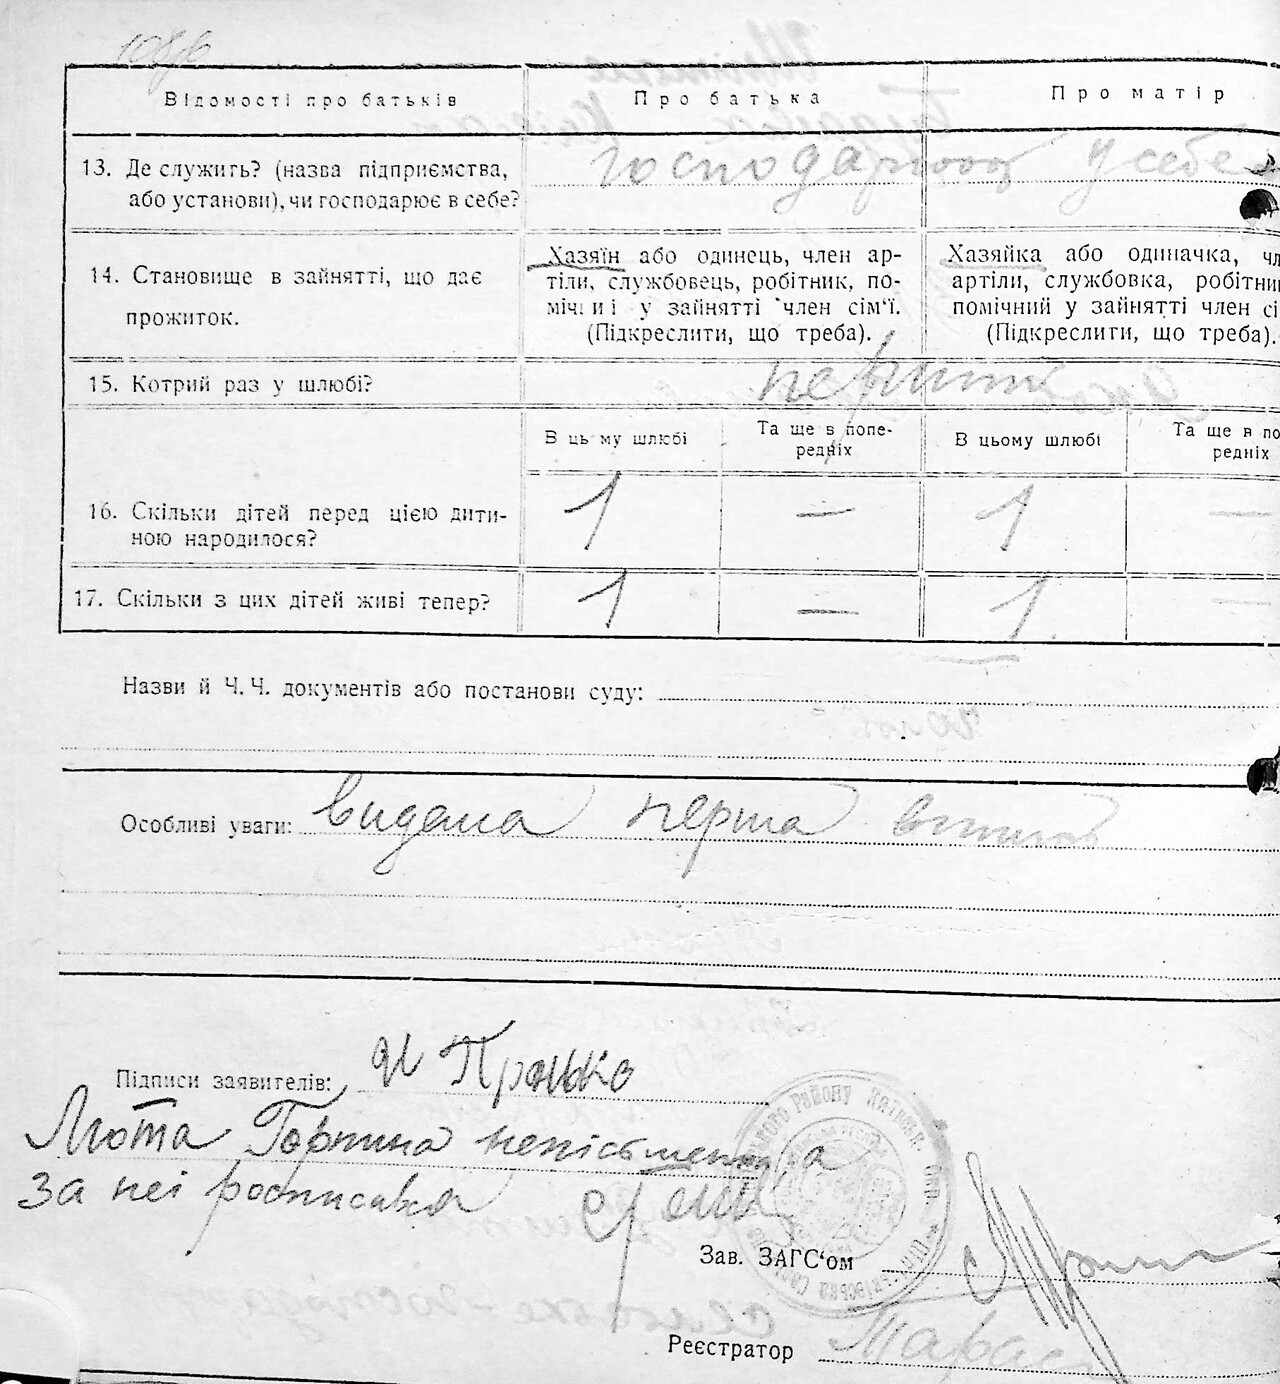 Відомості про батьків Про батька Про матір
13. Де служить? (назва підприємства,
або установи), чи господарює в себе?
господарюют у себе
14. Становище в зайнятті, що дає
прожиток.
Хазяїн або одинець, член ар-
тіли, службовець, робітник, по-
мічний у зайнятті член сім'ї.
(Підкреслити, що треба).
Хазяйка або одиначка, чл
артіли, службовка, робітни
помічний у зайнятті член сі
(Підкреслити, що треба).
15. Котрий раз у шлюбі? перший
В цьому шлюбі
Та ще в попе-
редніх
В цьому шлюбі
Та ще в по
редніх
16. Скільки дітей перед цією дити-
ною народилося?
1 — 1 —
17. Скільки з цих дітей живі тепер? 1 — 1 —
Назви й Ч. Ч. документів або постанови суду:
Особливі уваги: видана перша
Підписи заявителів:
Люта Горпина неписьменна, а
За неї росписався
Зав. ЗАГС'ом
Реєстратор